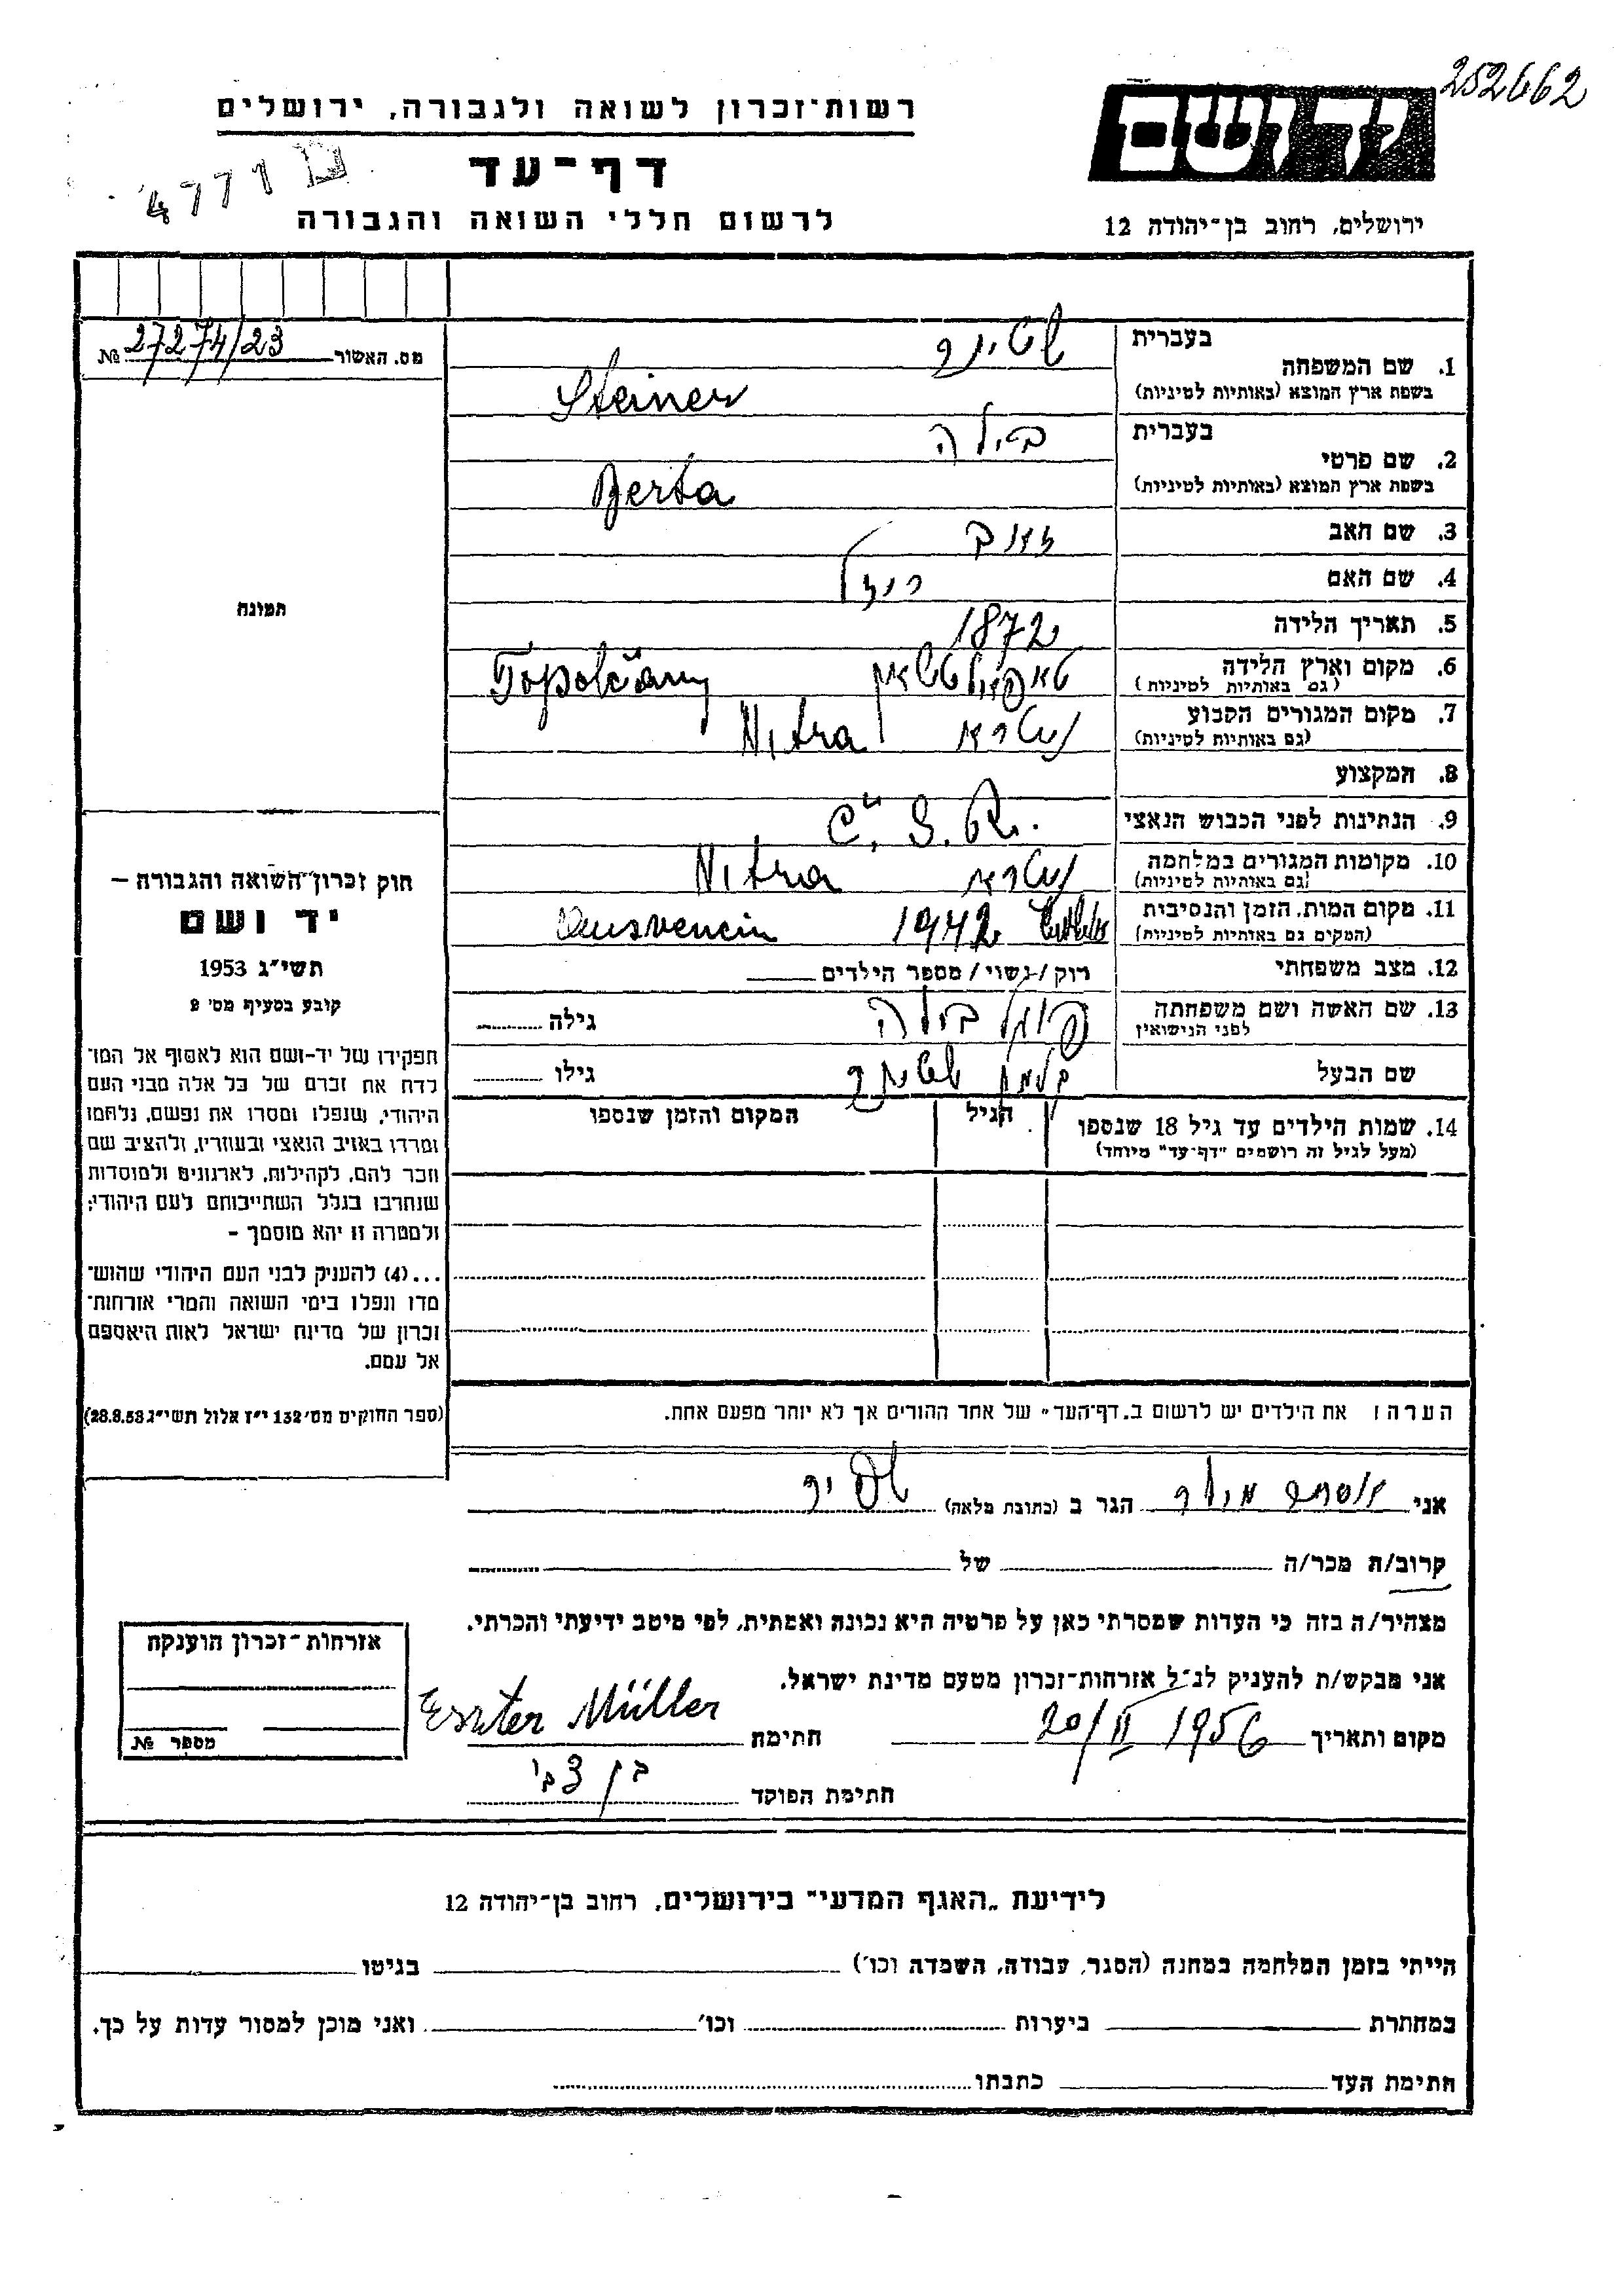 252662
רשות־זכרון לשואה ולגבורה, ירושלים
דף־עד
4771
לרשום חללי השואה והגבורה
ירושלים, רחוב בן־יהודה 12
מס. האשור 27274/23 №
בעברית
שטינר
1. שם המשפחה
בשפת ארץ המוצא (באותיות לטיניות)
Steiner
בעברית
בילה
2. שם פרטי
בשפת ארץ המוצא (באותיות לטיניות)
Berta
3. שם האב
4. שם האם
5. תאריך הלידה 1872
6. מקום וארץ הלידה Topolčany
(גם באותיות לטיניות)
7. מקום המגורים הקבוע ניטרא Nitra
(גם באותיות לטיניות)
8. המקצוע
9. הנתינות לפני הכבוש הנאצי Č.S.R.
10. מקומות המגורים במלחמה ניטרא Nitra
(גם באותיות לטיניות)
11. מקום המות, הזמן והנסיבות 1942 Ausvencin
(המקום גם באותיות לטיניות)
12. מצב משפחתי רוק / נשוי / מספר הילדים
13. שם האשה ושם משפחתה בילה גילה
לפני הנישואין
שם הבעל קלמן שטינר גילו
14. שמות הילדים עד גיל 18 שנספו הגיל המקום והזמן שנספו
(מעל לגיל זה רושמים "דף־עד" מיוחד)
תמונה
חוק זכרון־השואה והגבורה –
יד ושם
תשי"ג 1953
קובע בסעיף מס' 2
תפקידו של יד-ושם הוא לאסוף אל המו־
לדת את זכרם של כל אלה מבני העם
היהודי, שנפלו ומסרו את נפשם, נלחמו
ומרדו באויב הנאצי ובעוזריו, ולהציב שם
וזכר להם, לקהילות, לארגונים ולמוסדות
שנחרבו בגלל השתייכותם לעם היהודי;
ולמטרה זו יהא מוסמך –
...(4) להעניק לבני העם היהודי שהוש־
מדו ונפלו בימי השואה והמרי אזרחות־
זכרון של מדינת ישראל לאות היאספם
אל עמם.
(ספר החוקים מס' 132 י"ז אלול תשי"ג 28.8.53)
הערה: את הילדים יש לרשום ב"דף־העד" של אחד ההורים אך לא יותר מפעם אחת.
אני אסתר מילר הגר ב (כתובת מלאה)
קרוב/ת מכר/ה של
מצהיר/ה בזה כי העדות שמסרתי כאן על פרטיה היא נכונה ואמתית, לפי מיטב ידיעתי והכרתי.
אני מבקש/ת להעניק לנ"ל אזרחות־זכרון מטעם מדינת ישראל.
מקום ותאריך 20/II 1956 חתימה Eszter Müller
חתימת הפוקד בן צבי
אזרחות־זכרון הוענקה
מספר №
לידיעת "האגף המדעי" בירושלים, רחוב בן־יהודה 12
הייתי בזמן המלחמה במחנה (הסגר, עבודה, השמדה וכו') בגיטו
במחתרת ביערות וכו' ואני מוכן למסור עדות על כך.
חתימת העד כתבתו